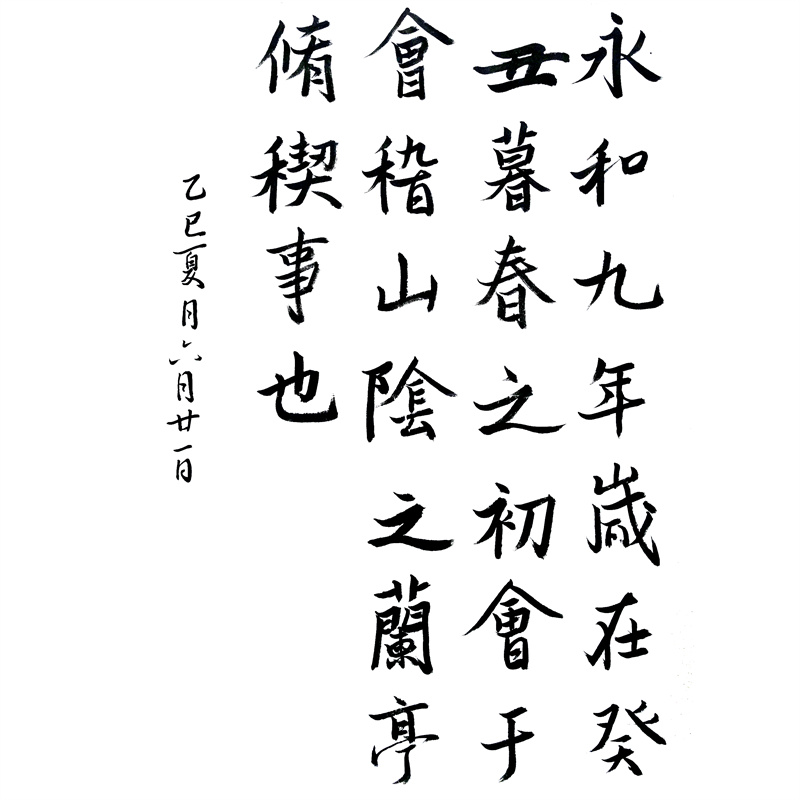 永和九年歲在癸
丑暮春之初會于
會稽山陰之蘭亭
脩稧事也
乙巳夏月六月廿一日